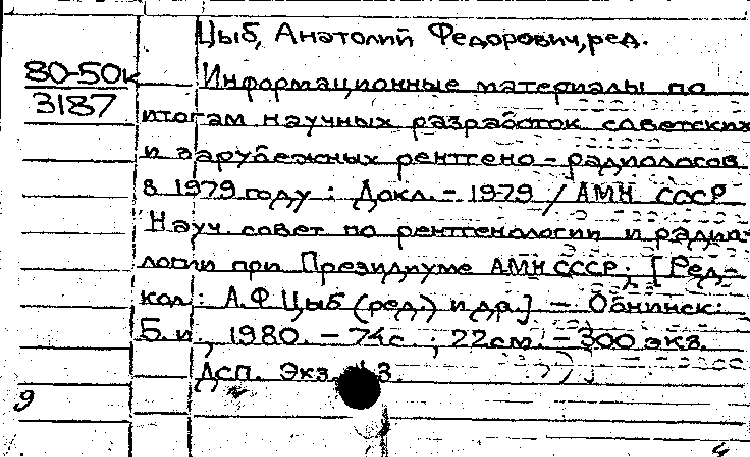 Цыб, Анатолий Федорович, ред.
80-50к
3187
Информационные материалы по
итогам научных разработок советских
и зарубежных рентгено-радиологов
в 1979 году: Докл. - 1979 / АМН СССР
Науч. совет по рентгенологии и радио-
логии при Президиуме АМН СССР; [Ред-
кол: А.Ф. Цыб (ред.) и др.] - Обнинск:
Б.и., 1980. - 74с.; 22см. - 300 экз.
Дсп. Экз. 3.
9